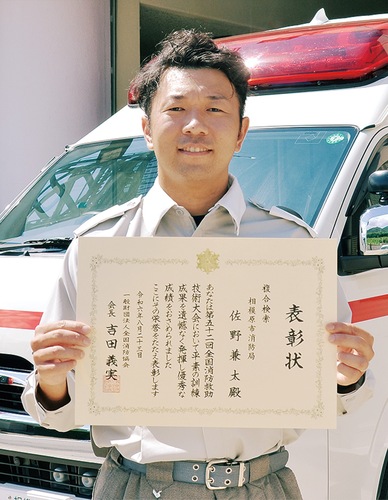 表彰状
複合検索
相模原市消防局
佐野兼太殿
あなたは第五十二回全国消防救助
技術大会において平素の訓練
成果を遺憾なく発揮し優秀な
成績をおさめられました
ここにその栄誉をたたえ表彰します
令和六年八月二十六日
一般財団法人全国消防協会
会長 吉田義実